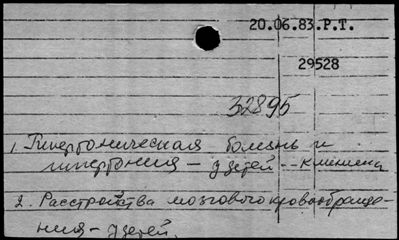 20.06.83.Р.Т.
29528
32895
1. Гипертоническая болезнь и
гипертония – у детей -- клиника
2. Расстройства мозгового кровообраще-
ния – у детей.